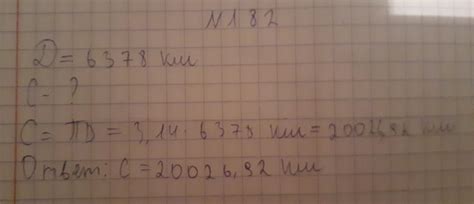 N182
D = 6378 км
C - ?
C = πD = 3,14 · 6378 км = 20026,92 км
Ответ: C = 20026,92 км